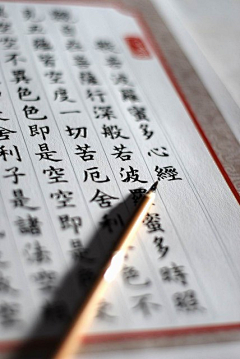 般若波羅蜜多心經
觀自在菩薩行深般若波羅蜜多時照
五蘊皆空度一切苦厄舍利色不
空空不異色色即是空空即是
舍利子是諸法空